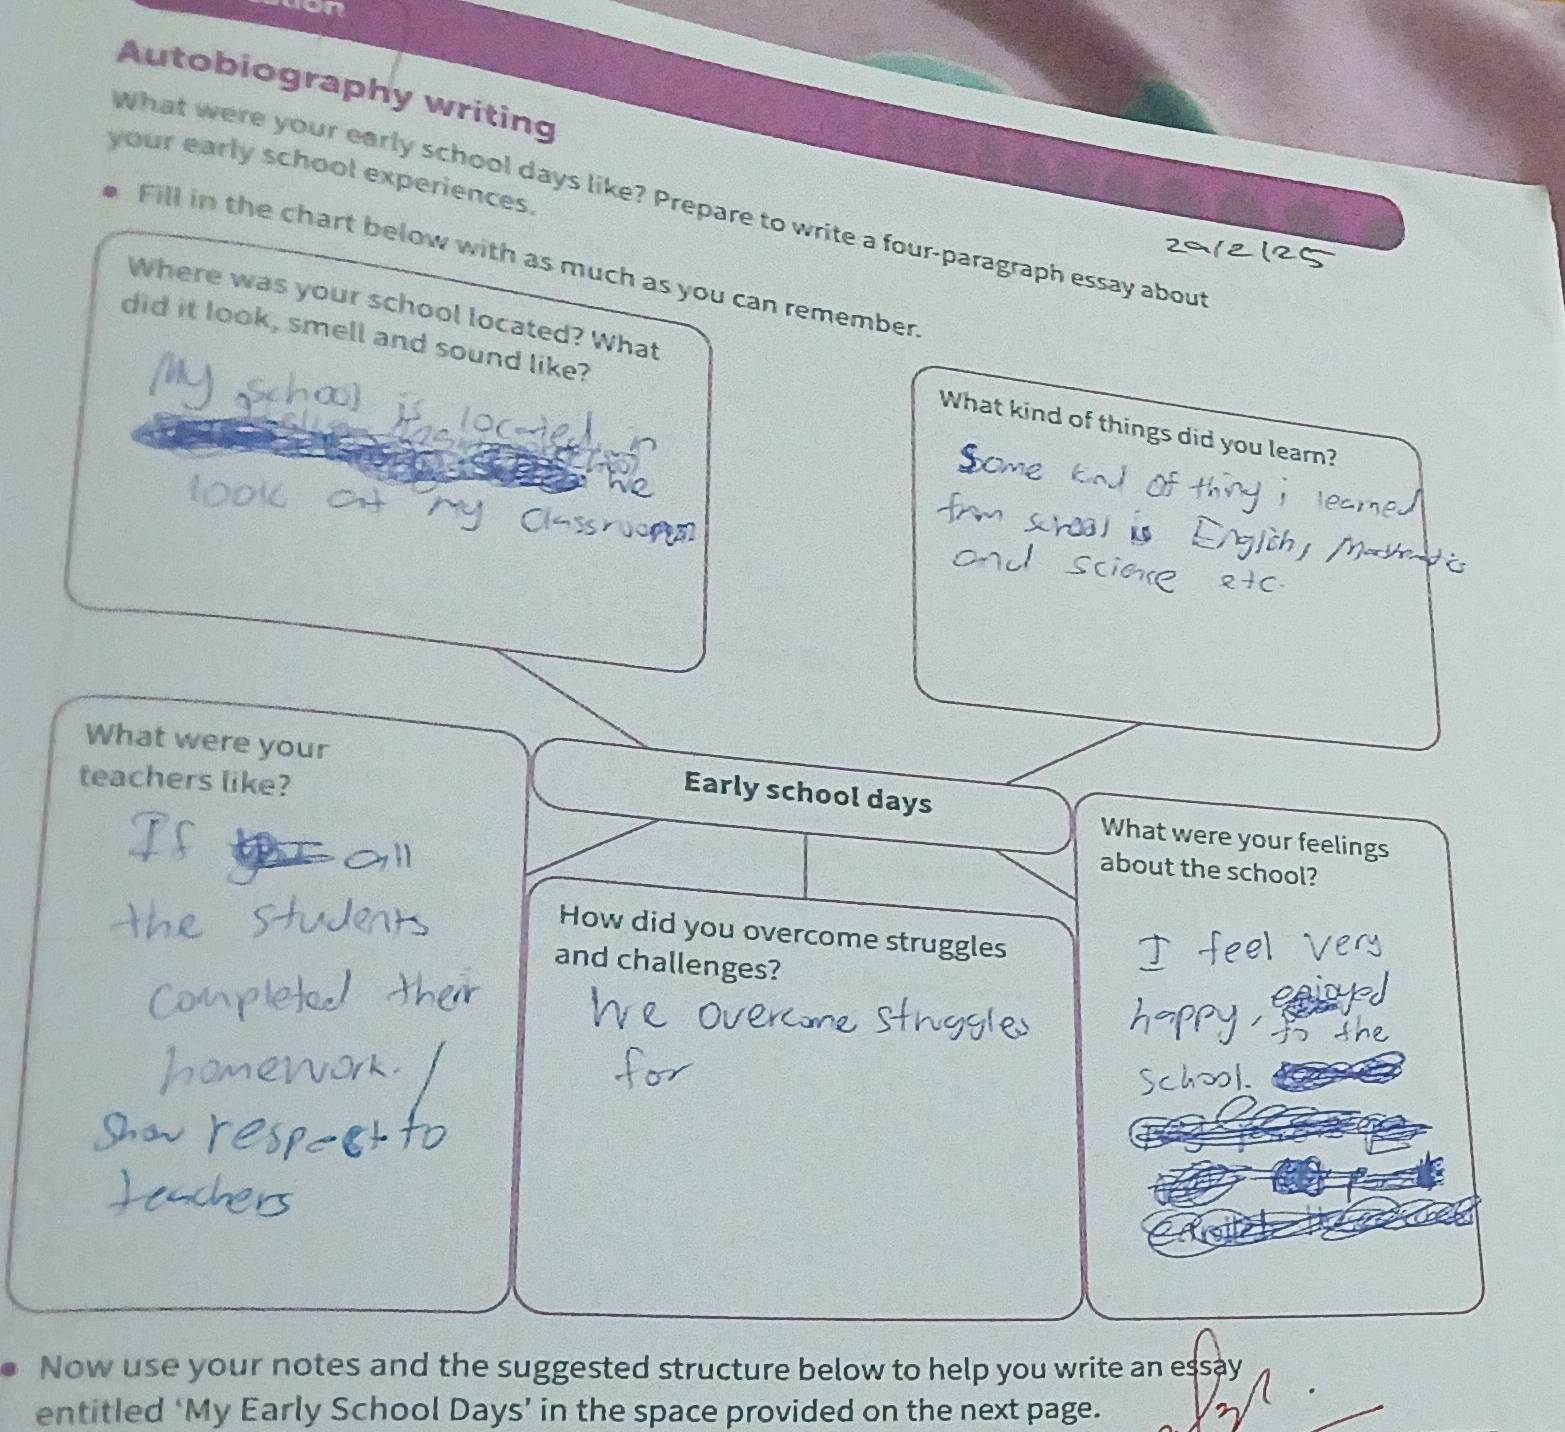 Autobiography writing
What were your early school days like? Prepare to write a four-paragraph essay about
your early school experiences.
• Fill in the chart below with as much as you can remember.
29/2/25
Where was your school located? What
did it look, smell and sound like?
My school is located in
we
look at my classroom
What kind of things did you learn?
Some kind of thing i learned
from school is English, Mathematics
and science etc.
What were your
teachers like?
If all
the students
completed their
homework. /
Show respect to
teachers
Early school days
How did you overcome struggles
and challenges?
We overcome struggles
for
What were your feelings
about the school?
I feel very
happy, enjoyed
to the
school.
• Now use your notes and the suggested structure below to help you write an essay
entitled ‘My Early School Days’ in the space provided on the next page.